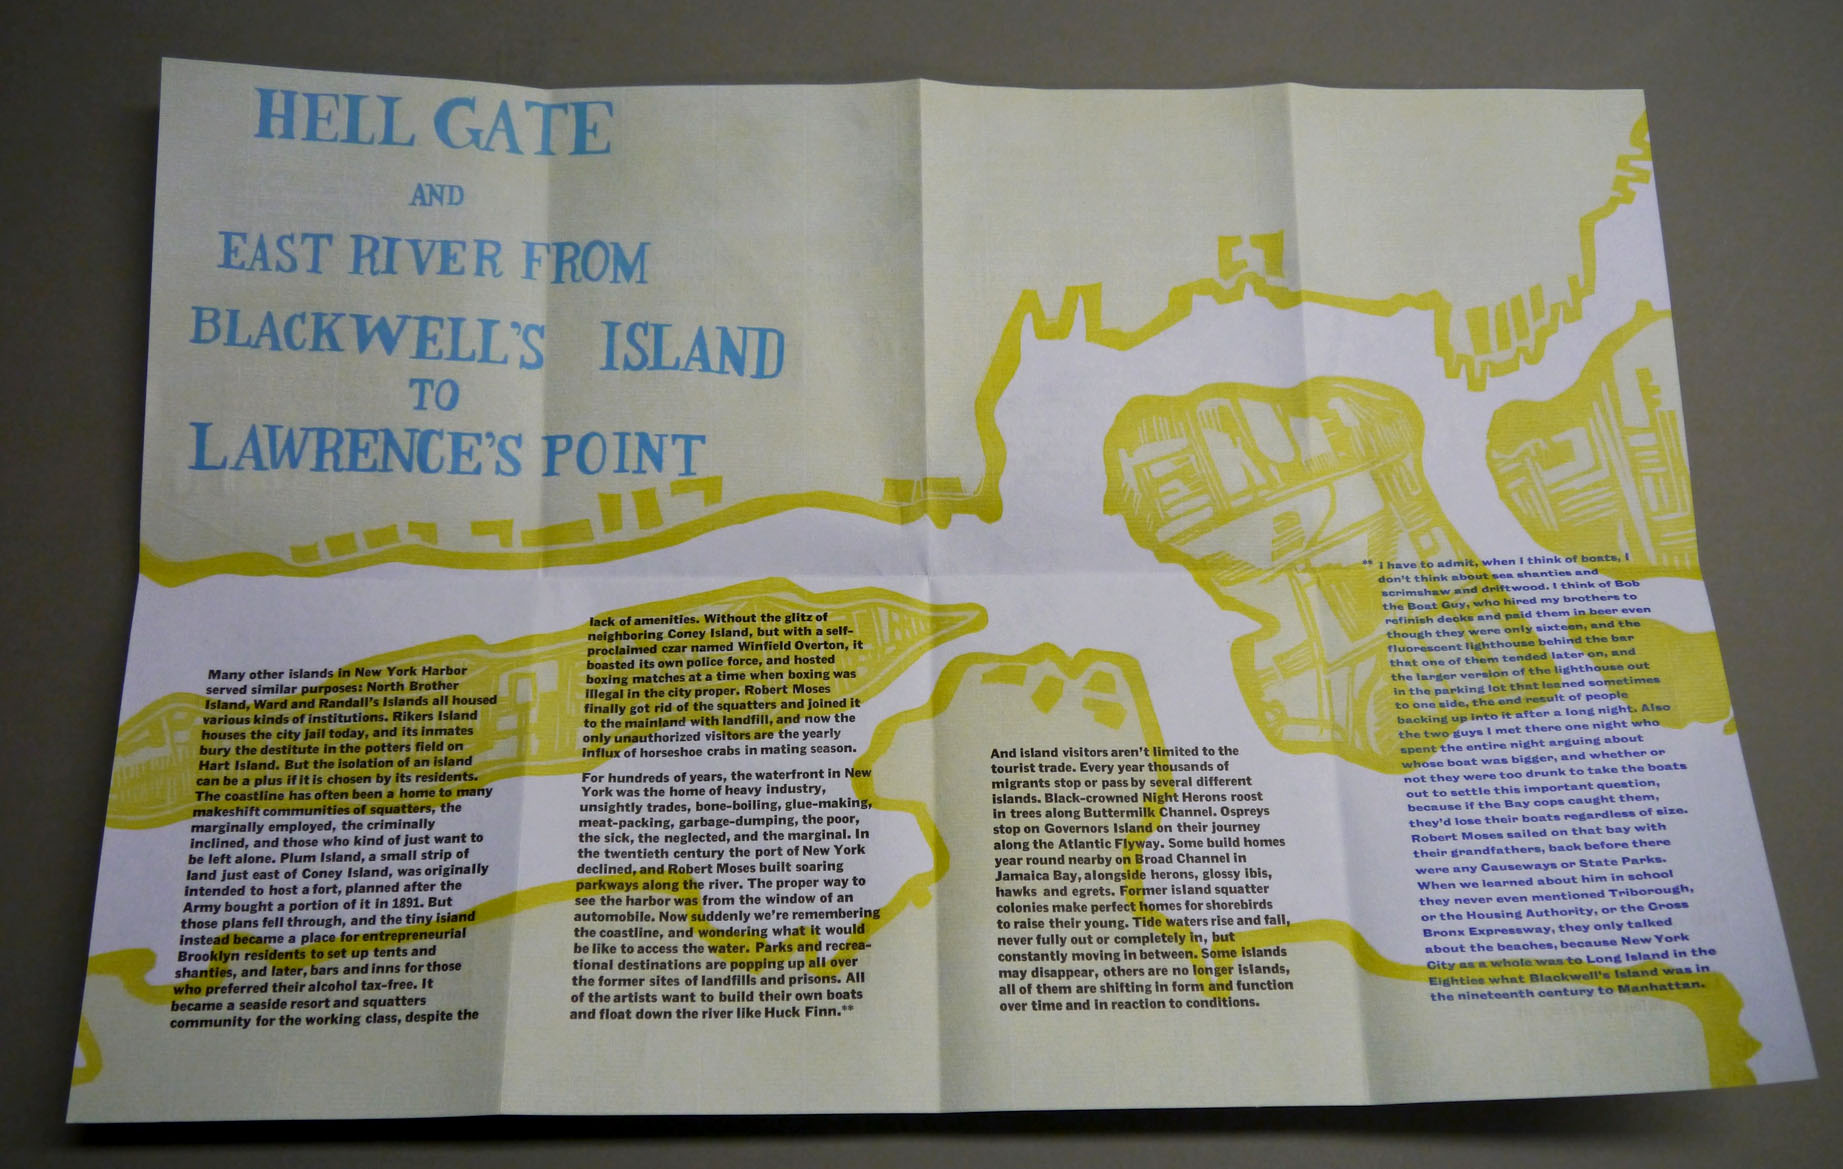 HELL GATE
AND
EAST RIVER FROM
BLACKWELL'S ISLAND
TO
LAWRENCE'S POINT
Many other islands in New York Harbor
served similar purposes: North Brother
Island, Ward and Randall's Islands all housed
various kinds of institutions. Rikers Island
houses the city jail today, and its inmates
bury the destitute in the potters field on
Hart Island. But the isolation of an island
can be a plus if it is chosen by its residents.
The coastline has often been a home to many
makeshift communities of squatters, the
marginally employed, the criminally
inclined, and those who kind of just want to
be left alone. Plum Island, a small strip of
land just east of Coney Island, was originally
intended to host a fort, planned after the
Army bought a portion of it in 1891. But
those plans fell through, and the tiny island
instead became a place for entrepreneurial
Brooklyn residents to set up tents and
shanties, and later, bars and inns for those
who preferred their alcohol tax-free. It
became a seaside resort and squatters
community for the working class, despite the
lack of amenities. Without the glitz of
neighboring Coney Island, but with a self-
proclaimed czar named Winfield Overton, it
boasted its own police force, and hosted
boxing matches at a time when boxing was
illegal in the city proper. Robert Moses
finally got rid of the squatters and joined it
to the mainland with landfill, and now the
only unauthorized visitors are the yearly
influx of horseshoe crabs in mating season.
For hundreds of years, the waterfront in New
York was the home of heavy industry,
unsightly trades, bone-boiling, glue-making,
meat-packing, garbage-dumping, the poor,
the sick, the neglected, and the marginal. In
the twentieth century the port of New York
declined, and Robert Moses built soaring
parkways along the river. The proper way to
see the harbor was from the window of an
automobile. Now suddenly we're remembering
the coastline, and wondering what it would
be like to access the water. Parks and recrea-
tional destinations are popping up all over
the former sites of landfills and prisons. All
of the artists want to build their own boats
and float down the river like Huck Finn.**
And island visitors aren't limited to the
tourist trade. Every year thousands of
migrants stop or pass by several different
islands. Black-crowned Night Herons roost
in trees along Buttermilk Channel. Ospreys
stop on Governors Island on their journey
along the Atlantic Flyway. Some build homes
year round nearby on Broad Channel in
Jamaica Bay, alongside herons, glossy ibis,
hawks and egrets. Former island squatter
colonies make perfect homes for shorebirds
to raise their young. Tide waters rise and fall,
never fully out or completely in, but
constantly moving in between. Some islands
may disappear, others are no longer islands,
all of them are shifting in form and function
over time and in reaction to conditions.
** I have to admit, when I think of boats, I
don't think about sea shanties and
scrimshaw and driftwood. I think of Bob
the Boat Guy, who hired my brothers to
refinish decks and paid them in beer even
though they were only sixteen, and the
fluorescent lighthouse behind the bar
that one of them tended later on, and
the larger version of the lighthouse out
in the parking lot that leaned sometimes
to one side, the end result of people
backing up into it after a long night. Also
the two guys I met there one night who
spent the entire night arguing about
whose boat was bigger, and whether or
not they were too drunk to take the boats
out to settle this important question,
because if the Bay cops caught them,
they'd lose their boats regardless of size.
Robert Moses sailed on that bay with
their grandfathers, back before there
were any Causeways or State Parks.
When we learned about him in school
they never even mentioned Triborough,
or the Housing Authority, or the Cross
Bronx Expressway, they only talked
about the beaches, because New York
City as a whole was to Long Island in the
Eighties what Blackwell's Island was in
the nineteenth century to Manhattan.